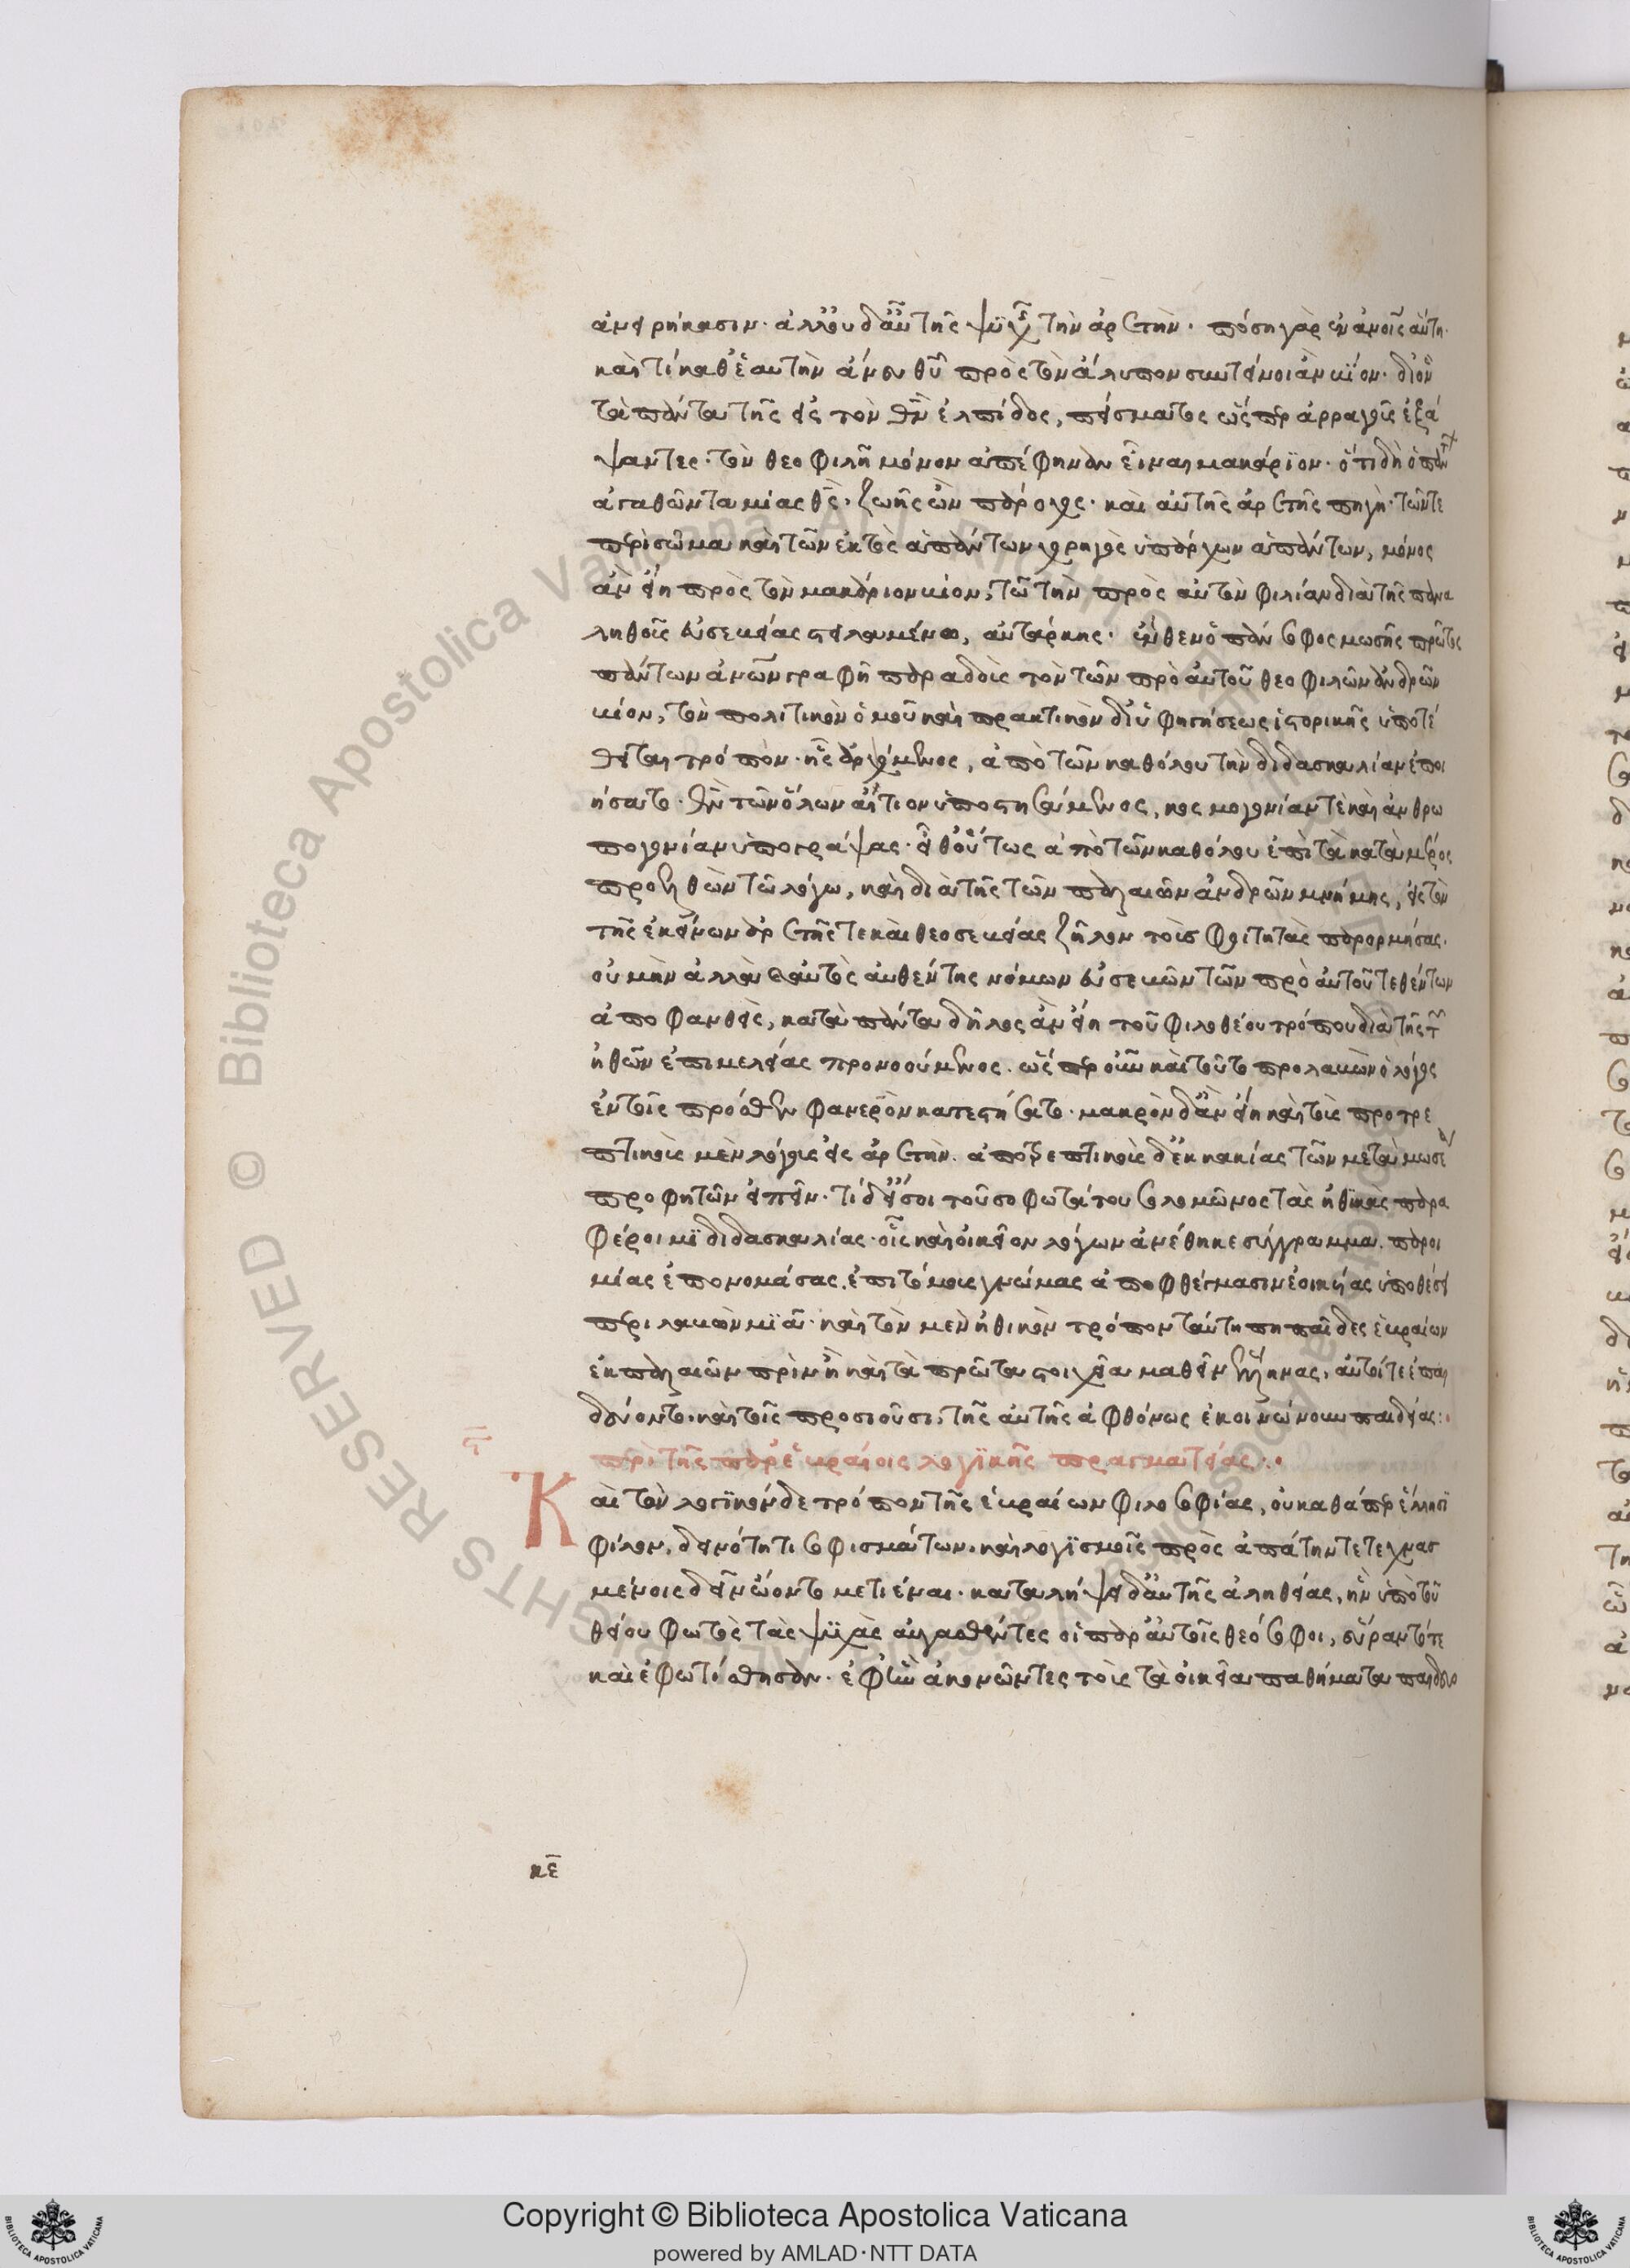 ἀνειρήκασιν· ἄλλου δ' αὖ τῆς ψυχῆς τὴν ἀρετήν. πόση γὰρ ἐν ἀνοις αὕτη.
καὶ τί καθ' ἑαυτὴν ἄνευ θυ πρὸς τὸν ἄλυπον συντείνοι ἂν βίον. διὸ
τὰ πάντα τῆς εἰς τὸν θν ἐλπίδος, πείσματος ὥσπερ ἀρραγοῦς ἐξά
ψαντες. τὸν θεοφιλῆ μόνον ἀπέφηναν εἶναι μακάριον. ὅτι δὴ ὁ πάντων
ἀγαθῶν ταμίας θς. ζωῆς ὢν πάροχος. καὶ αὐτῆς ἀρετῆς πηγή. τῶν τε
περὶ σῶμα καὶ τῶν ἐκτὸς ἁπάντων χορηγὸς ὑπάρχων ἁπάντων, μόνος
ἂν εἴη πρὸς τὸν μακάριον βίον, τῶ τὴν πρὸς αὐτὸν φιλίαν διὰ τῆς πανα
ληθοῦς εὐσεβείας στειλαμένω, αὐτάρκης. ἔνθεν ὁ πάνσοφος μωσῆς πρῶτος
πάντων ἀνων γραφῆ παραδοὺς τὸν τῶν πρὸ αὐτοῦ θεοφιλῶν ἀνδρῶν
βίον, τὸν πολιτικὸν ὁμοῦ καὶ πρακτικὸν δι' ὑφηγήσεως ἱστορικῆς ὑποτέ
θειται τρόπον. ἧς ἀρχόμενος, ἀπὸ τῶν καθόλου τὴν διδασκαλίαν ἐποι
ήσατο. θν τῶν ὅλων αἴτιον ὑποστησάμενος, κοσμογονίαν τὲ καὶ ἀνθρω
πογονίαν ὑπογράψας. εἶθ' οὕτως ἀπὸ τῶν καθόλου ἐπὶ τὰ κατὰ μέρος
προελθὼν τῶ λόγω, καὶ διὰ τῆς τῶν παλαιῶν ἀνδρῶν μνήμης, εἰς τὸν
τῆς ἐκείνων ἀρετῆς τε καὶ θεοσεβείας ζῆλον τοὺς φοιτητὰς παρορμήσας.
οὐ μὴν ἀλλὰ καὶ αὐτὸς αὐθέντης νόμων εὐσεβῶν τῶν πρὸ αὐτοῦ τεθέντων
ἀποφανθεὶς, κατὰ πάντα δῆλος ἂν εἴη τοῦ φιλοθέου τρόπου διὰ τῆς τῶν
ἠθῶν ἐπιμελείας προνοούμενος. ὥσπερ οὖν καὶ τοῦτο προλαβὼν ὁ λόγος
ἐν τοῖς πρόσθεν φανερὸν κατεστήσατο. μακρὸν δ' ἂν εἴη καὶ τοὺς προτρε
πτικοὺς μὲν λόγους εἰς ἀρετὴν. ἀποτρεπτικοὺς δ' ἐκ κακίας τῶν μετὰ μωσέα
προφητῶν εἰπεῖν. τί δ' εἴ σοι τοῦ σοφωτάτου σολομῶνος τὰς ἠθϊκὰς παρα
φέροιμϊ διδασκαλίας. οἷς καὶ οἰκεῖον λόγων ἀνέθηκε σύγγραμμα. παροι
μίας ἐπονομάσας. ἐπιτόμους γνώμας ἀποφθέγμασιν ἐοικυίας ὑποθέσει
περιλαβὼν μϊᾶ. καὶ τὸν μὲν ἠθικὸν τρόπον ταύτη πη παῖδες ἑβραίων
ἐκ παλαιῶν πρὶν ἢ καὶ τὰ πρῶτα στοιχεῖα μαθεῖν ἕλληνας, αὐτοί τε ἐπαι
δεύοντο. καὶ τοῖς προσιοῦσι, τῆς αὐτῆς ἀφθόνως ἐκοινώνουν παιδείας:.
περὶ τῆς παρ' ἑβραίοις λογϊκῆς πραγματείας:.
Καὶ τὸν λογϊκὸν δὲ τρόπον τῆς ἑβραίων φιλοσοφίας, οὐ καθάπερ ἕλλησϊ
φίλον, δεινότητι σοφισμάτων. καὶ λογϊσμοῖς πρὸς ἀπάτην τετεχνασ
μένοις δεῖν ᾤοντο μετιέναι. καταλήψει δ' αὐτῆς ἀληθείας, ἣν ὑπὸ τοῦ
θείου φωτὸς τὰς ψϋχὰς αὐγασθέντες οἱ παρ' αὐτοῖς θεόσοφοι, εὗραν τότε
καὶ ἐφωτίσθησαν. ἐφ' ὃ ἀκονῶντες τοὺς τὰ οἰκεῖα παθήματα παιδευο
κε